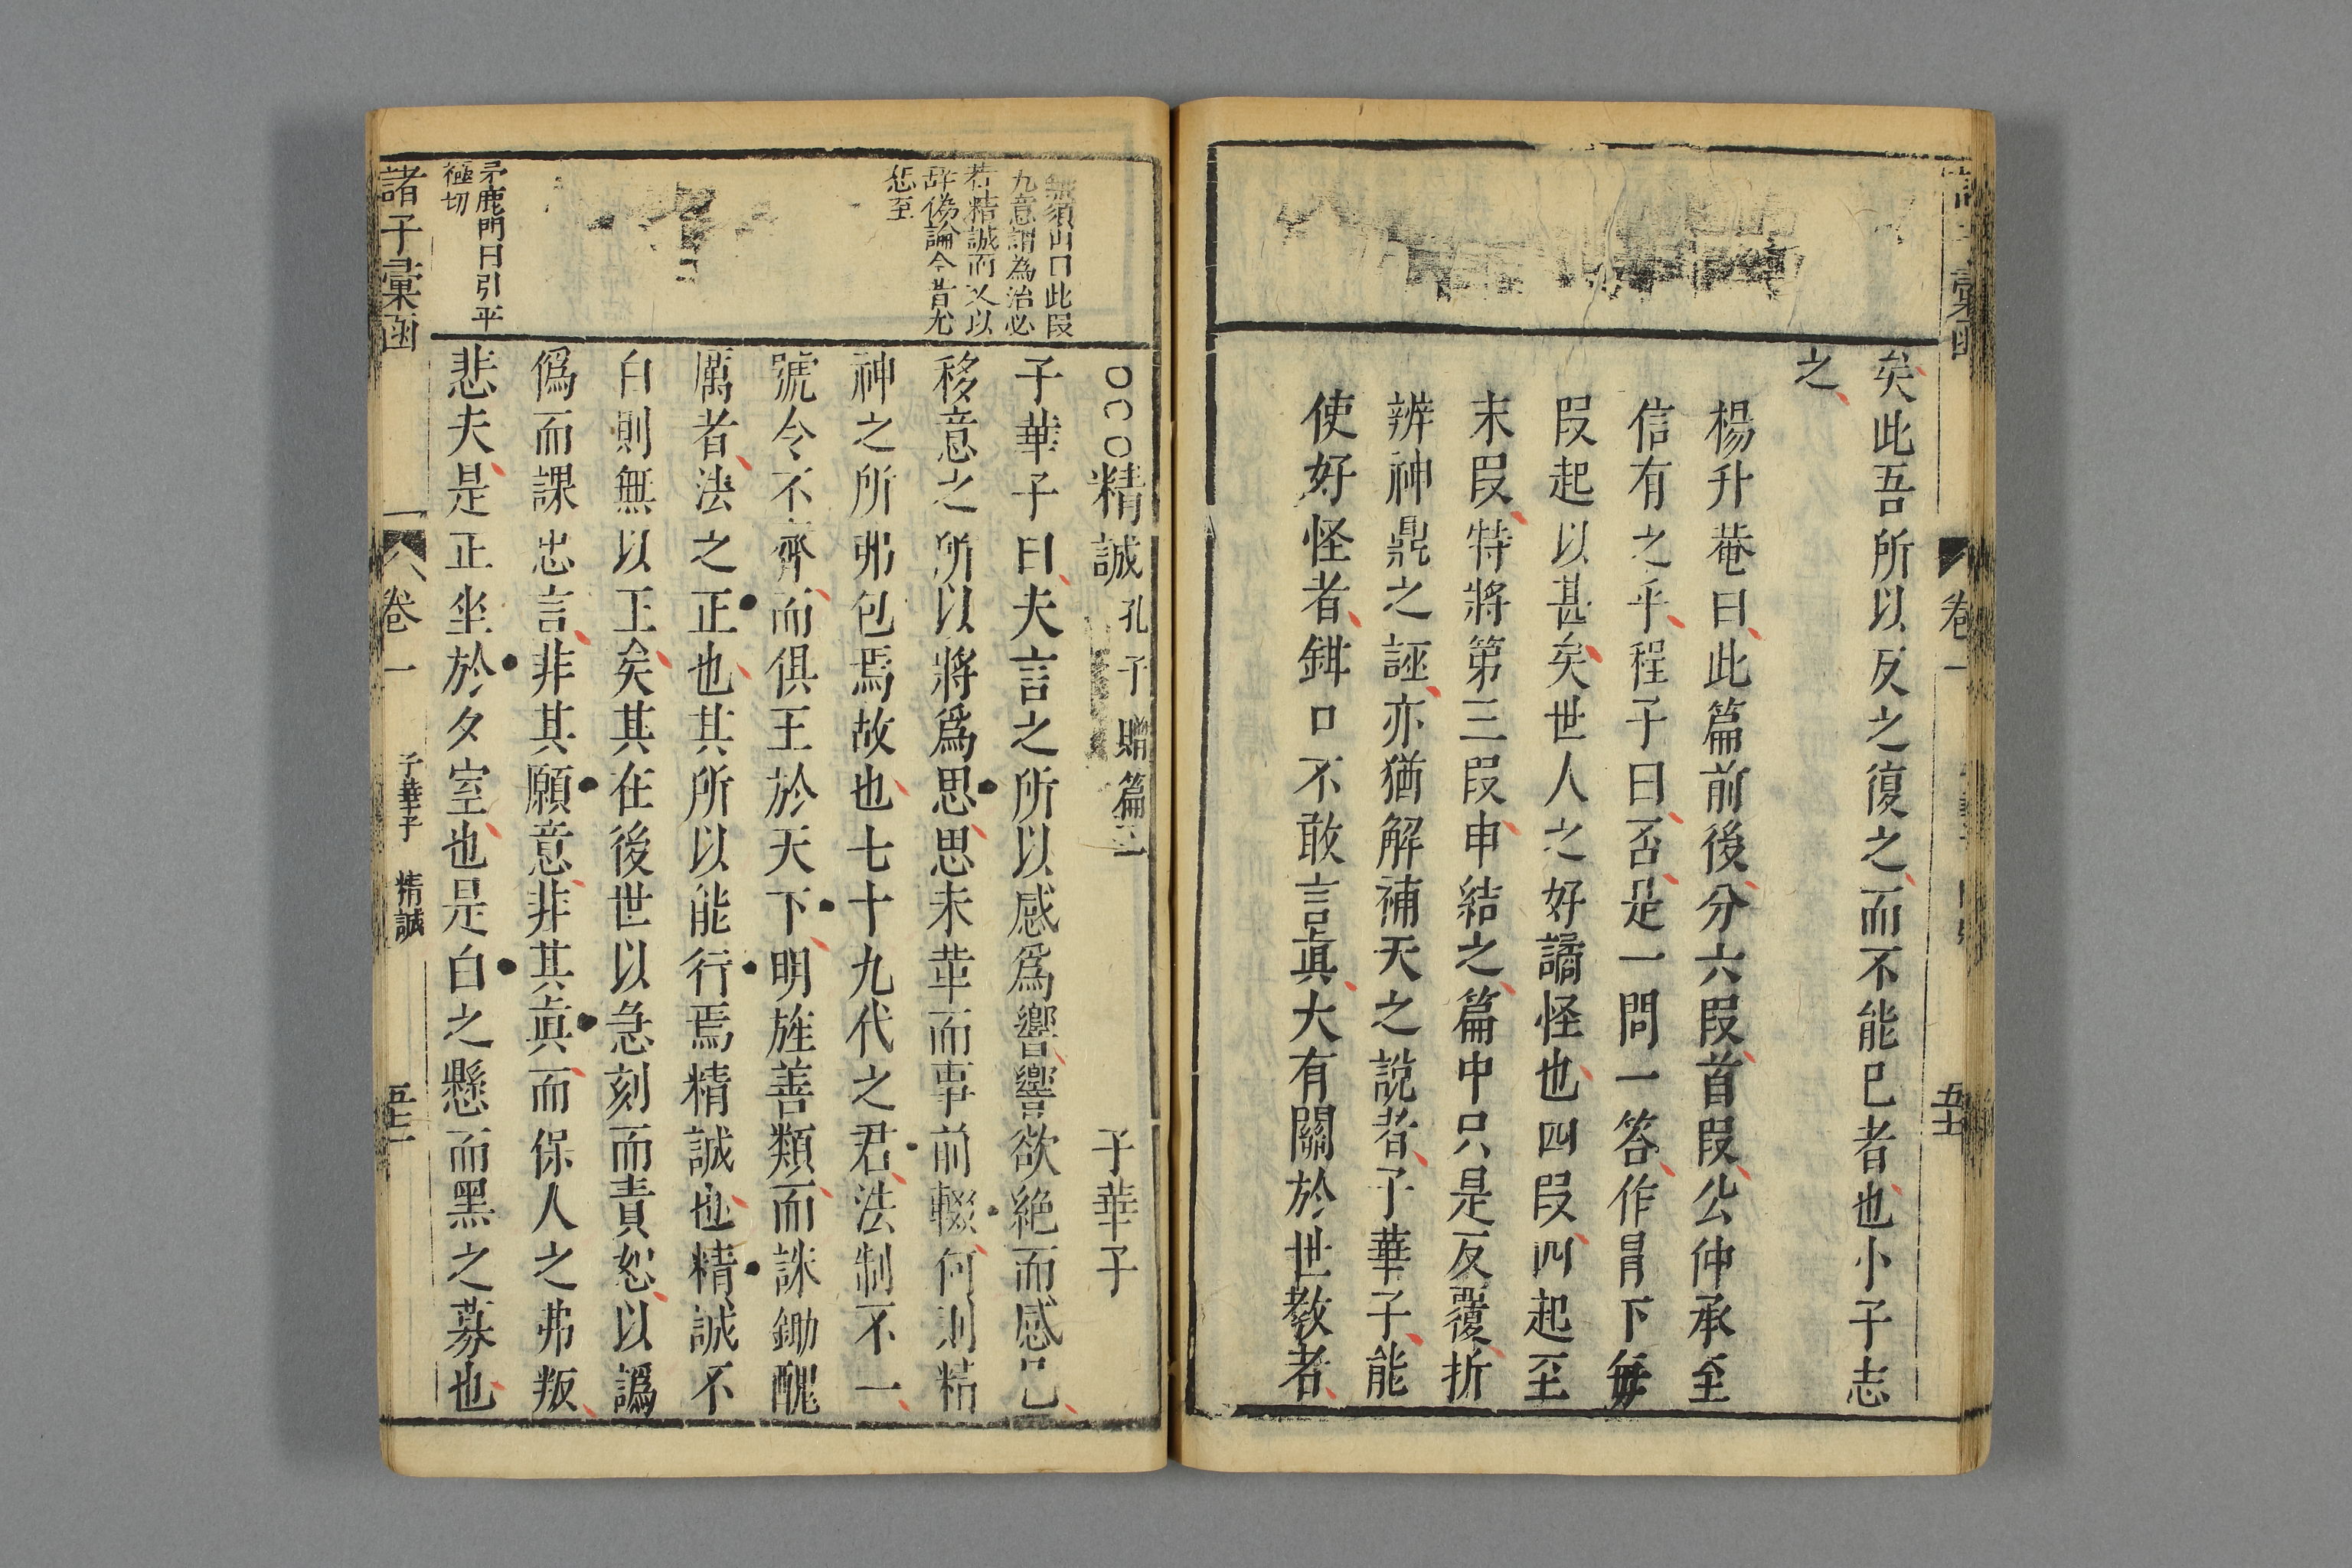 矣此吾所以反之復之而不能已者也小子志
之
楊升菴曰此篇前後分六段首段公仲承至
信有之乎程子曰否是一問一答作冐下每
段起以甚矣世人之好譎怪也四段四起至
末段特將第三段申結之篇中只是反覆折
辨神鼎之誣亦猶解補天之說者子華子能
使好怪者鉗口不敢言眞大有關於世教者
卷一
精誠 孔子贈篇 子華子
子華子曰夫言之所以感爲響響欲絶而感已
移意之所以將爲思思未萃而事前輟何則精
神之所弗包焉故也七十九代之君法制不一
號令不齊而俱王於天下明旌善類而誅鋤醜
厲者法之正也其所以能行焉精誠也精誠不
白則無以王矣其在後世以急刻而責恕以譌
僞而課忠言非其願意非其眞而保人之弗叛
悲夫是正坐於夕室也是白之懸而黑之募也
須出口此段
九意謂為治必
若精誠而又以
辞偽論今昔尤
悲至
茅鹿門曰引平
極切
諸子彙函
卷一
子華子 精誠